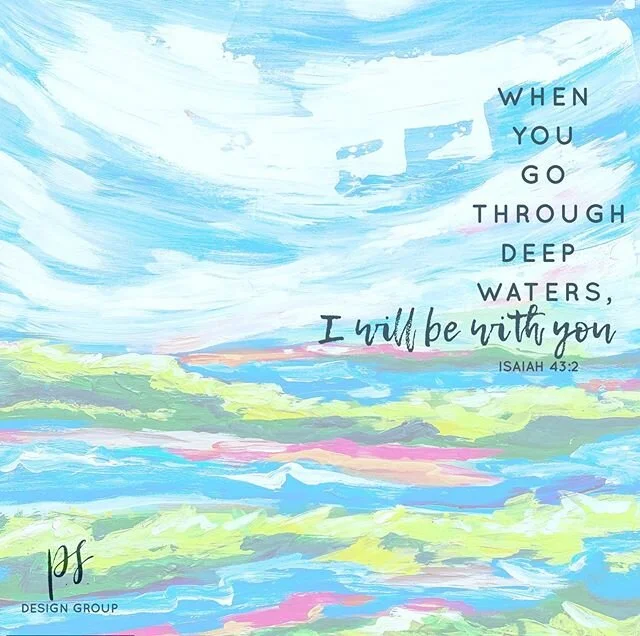 WHEN
YOU
GO
THROUGH
DEEP
WATERS,
I will be with you
ISAIAH 43:2
p.s.
DESIGN GROUP